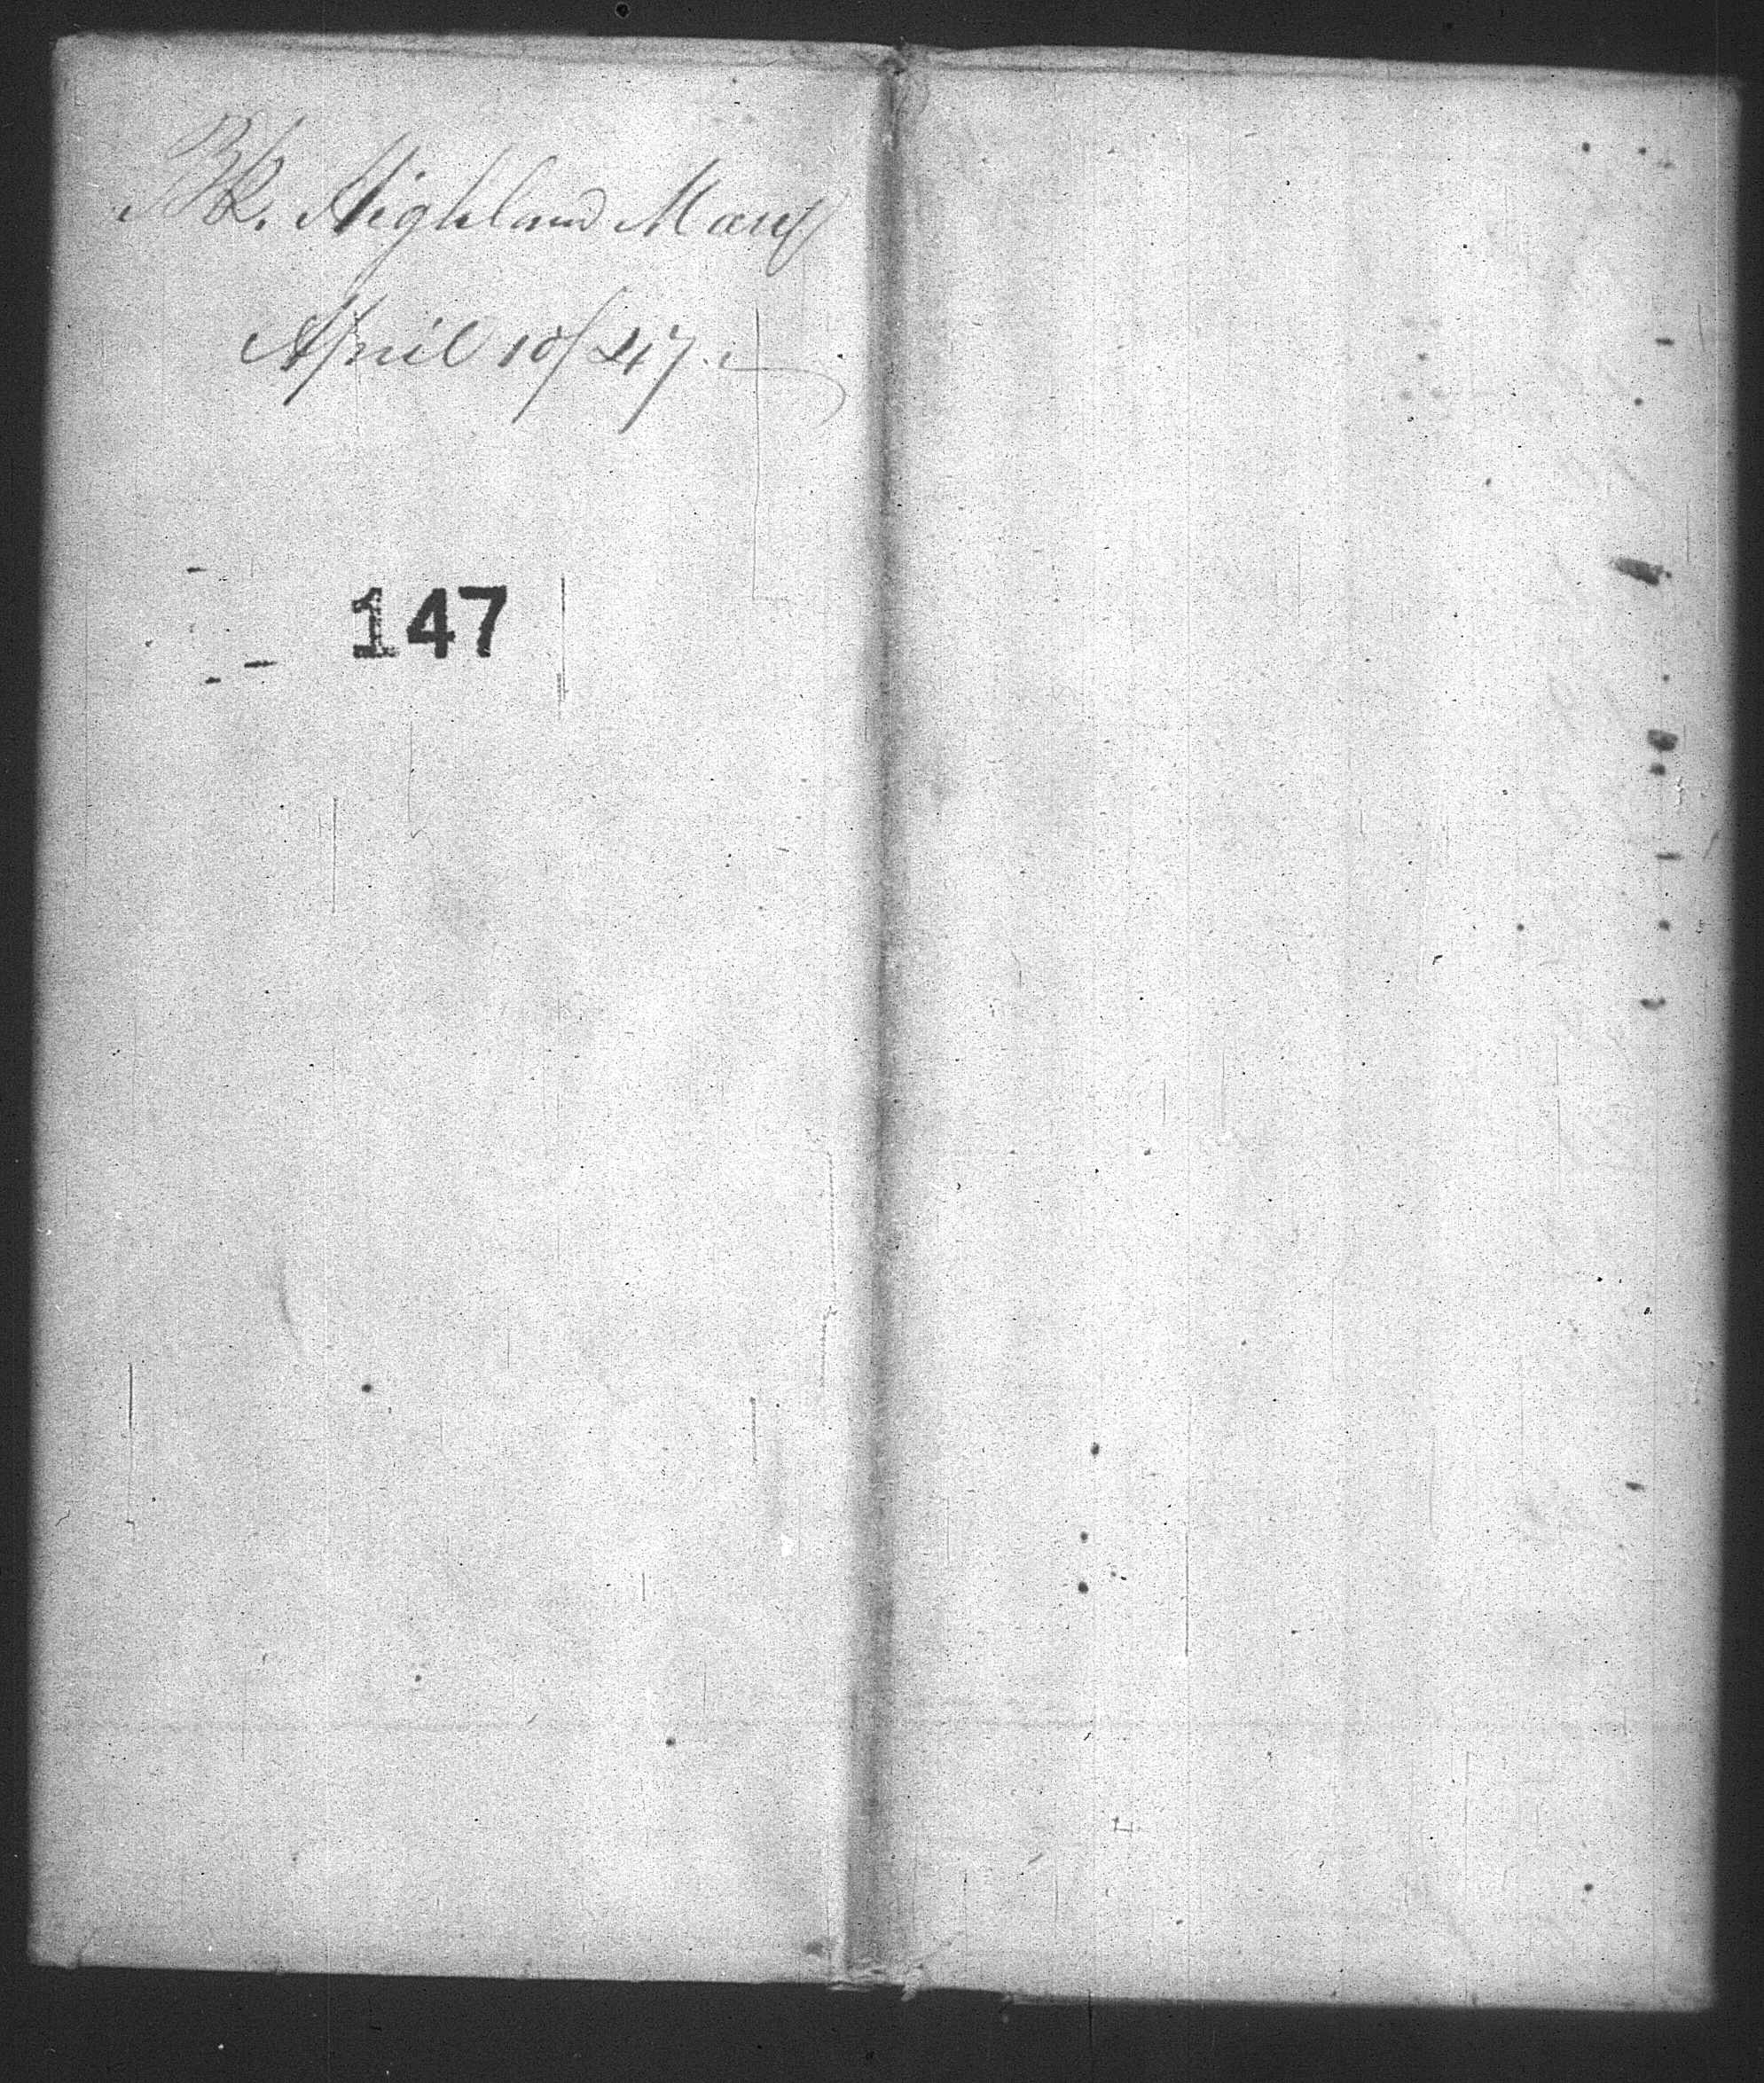 Bk. Highland Mary
April 10/47.
147